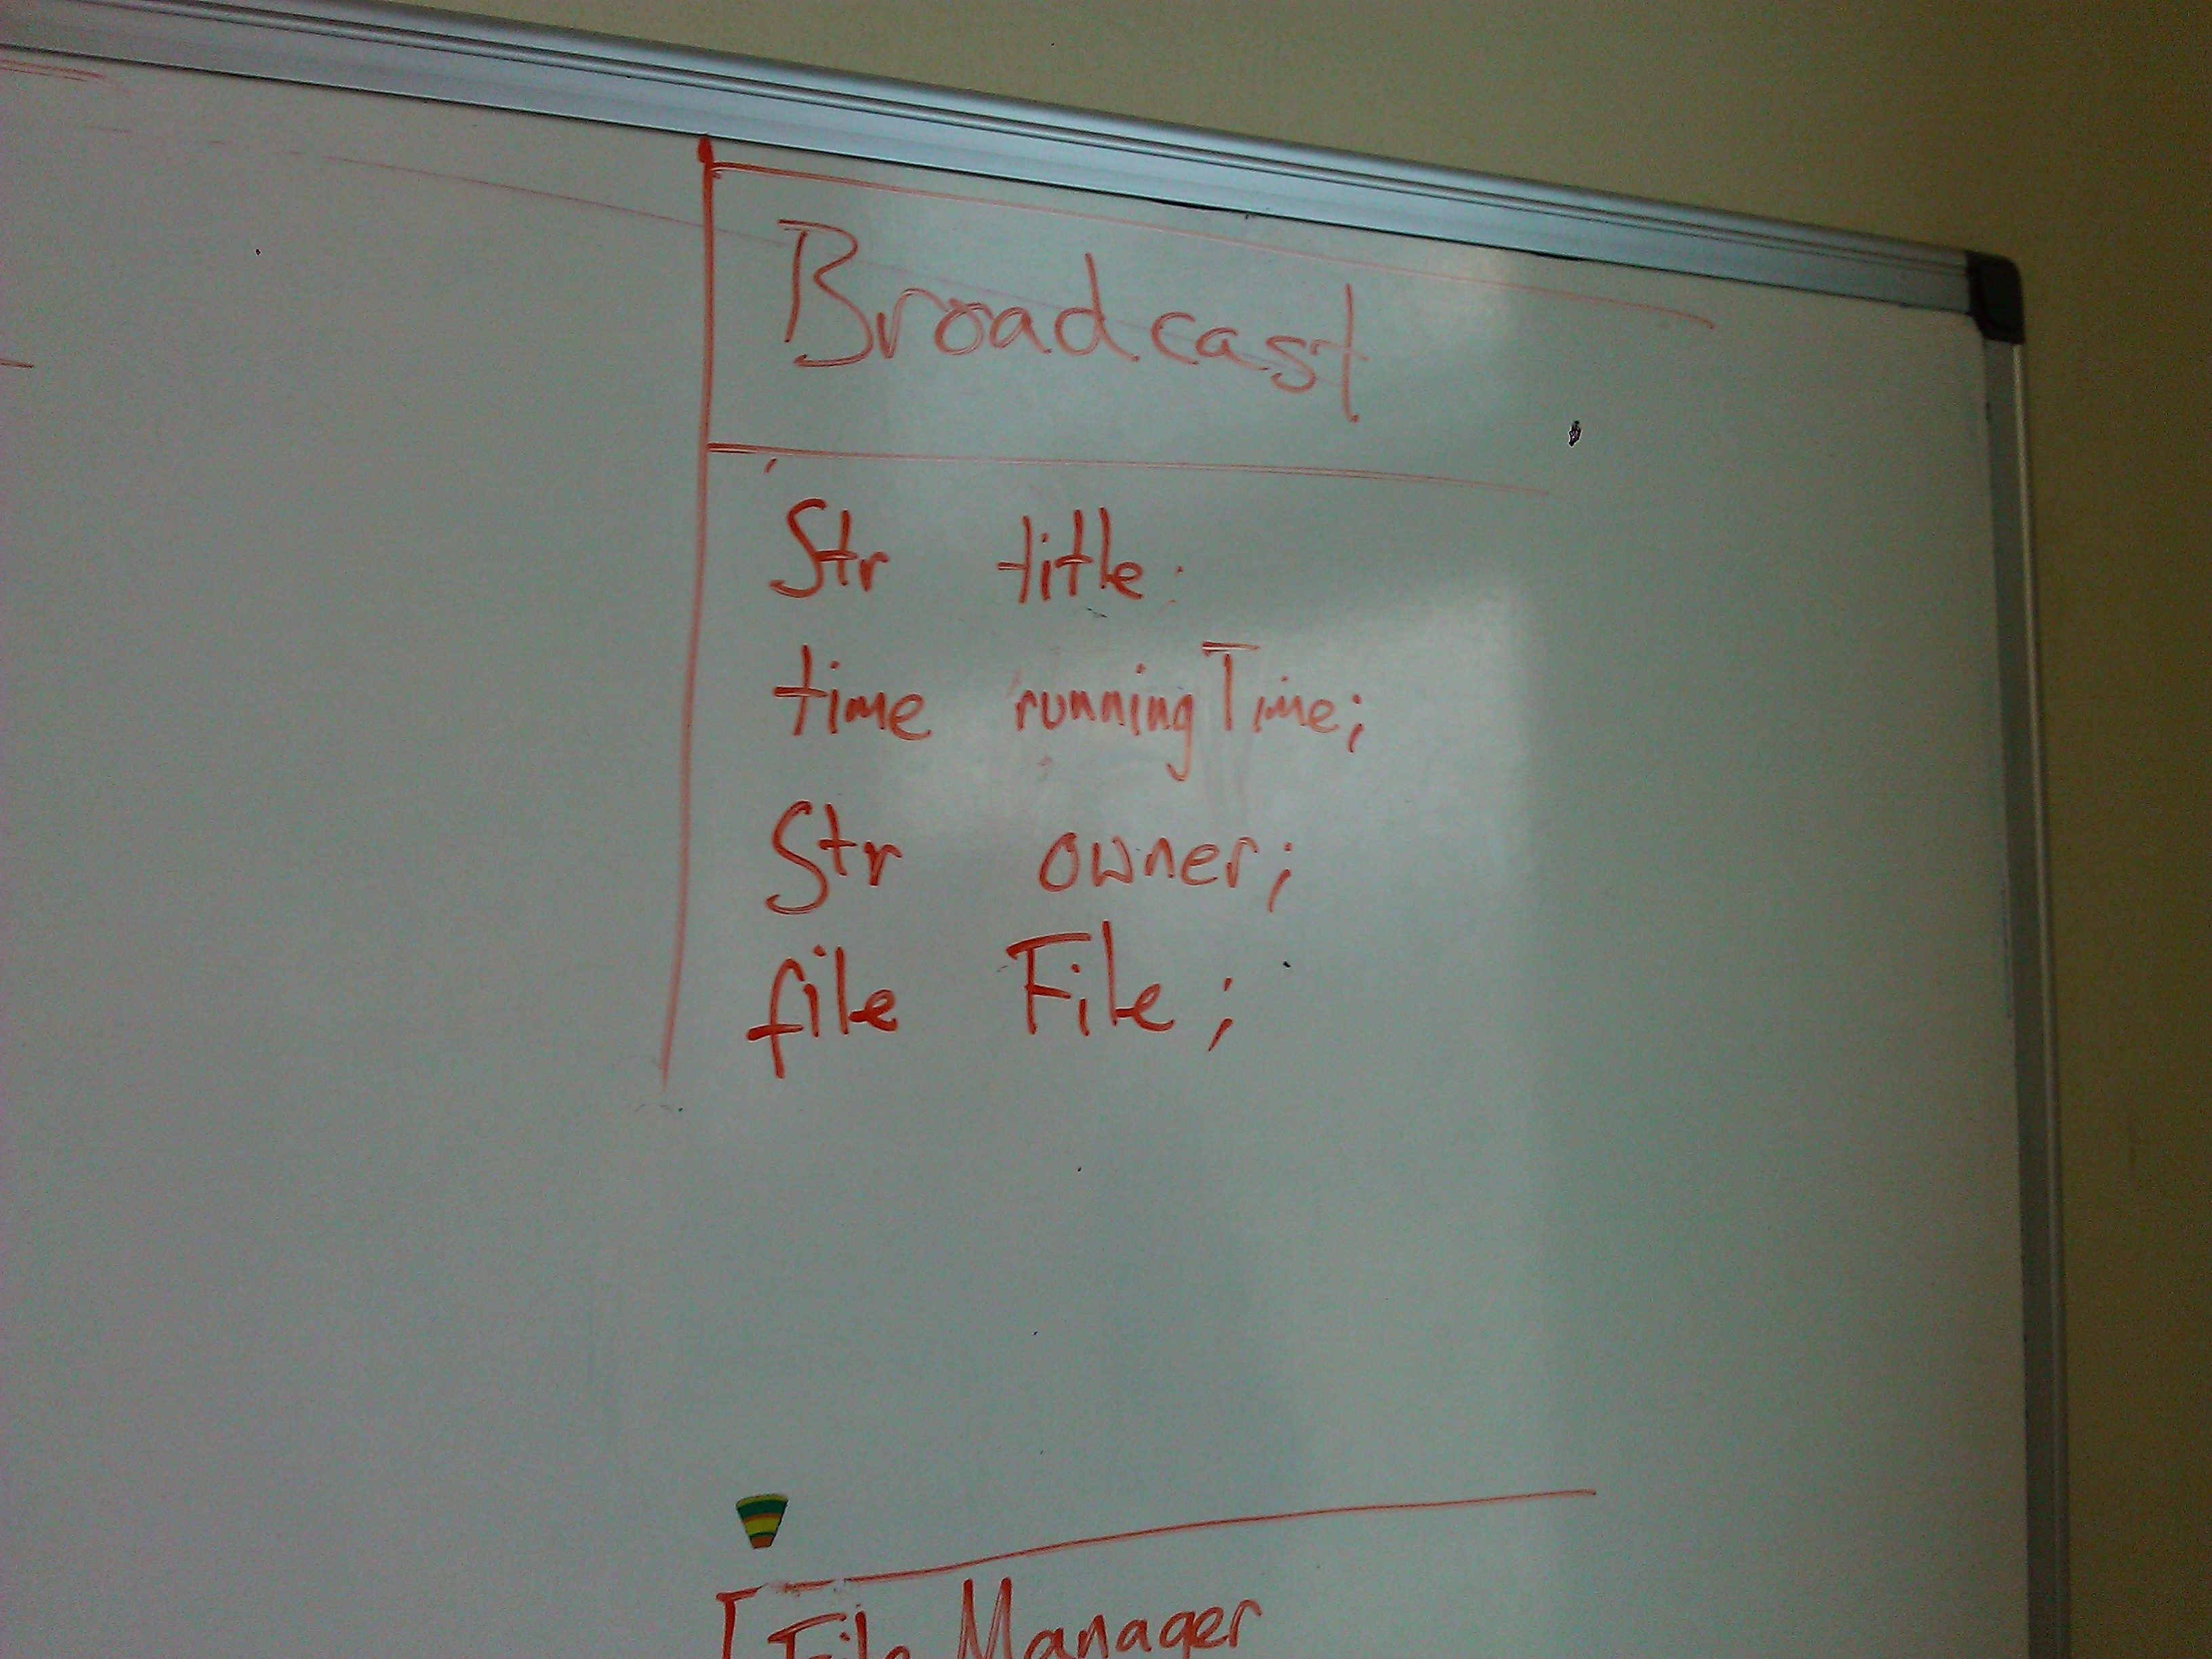 Broadcast
Str title;
time runningTime;
Str owner;
file File;
File Manager